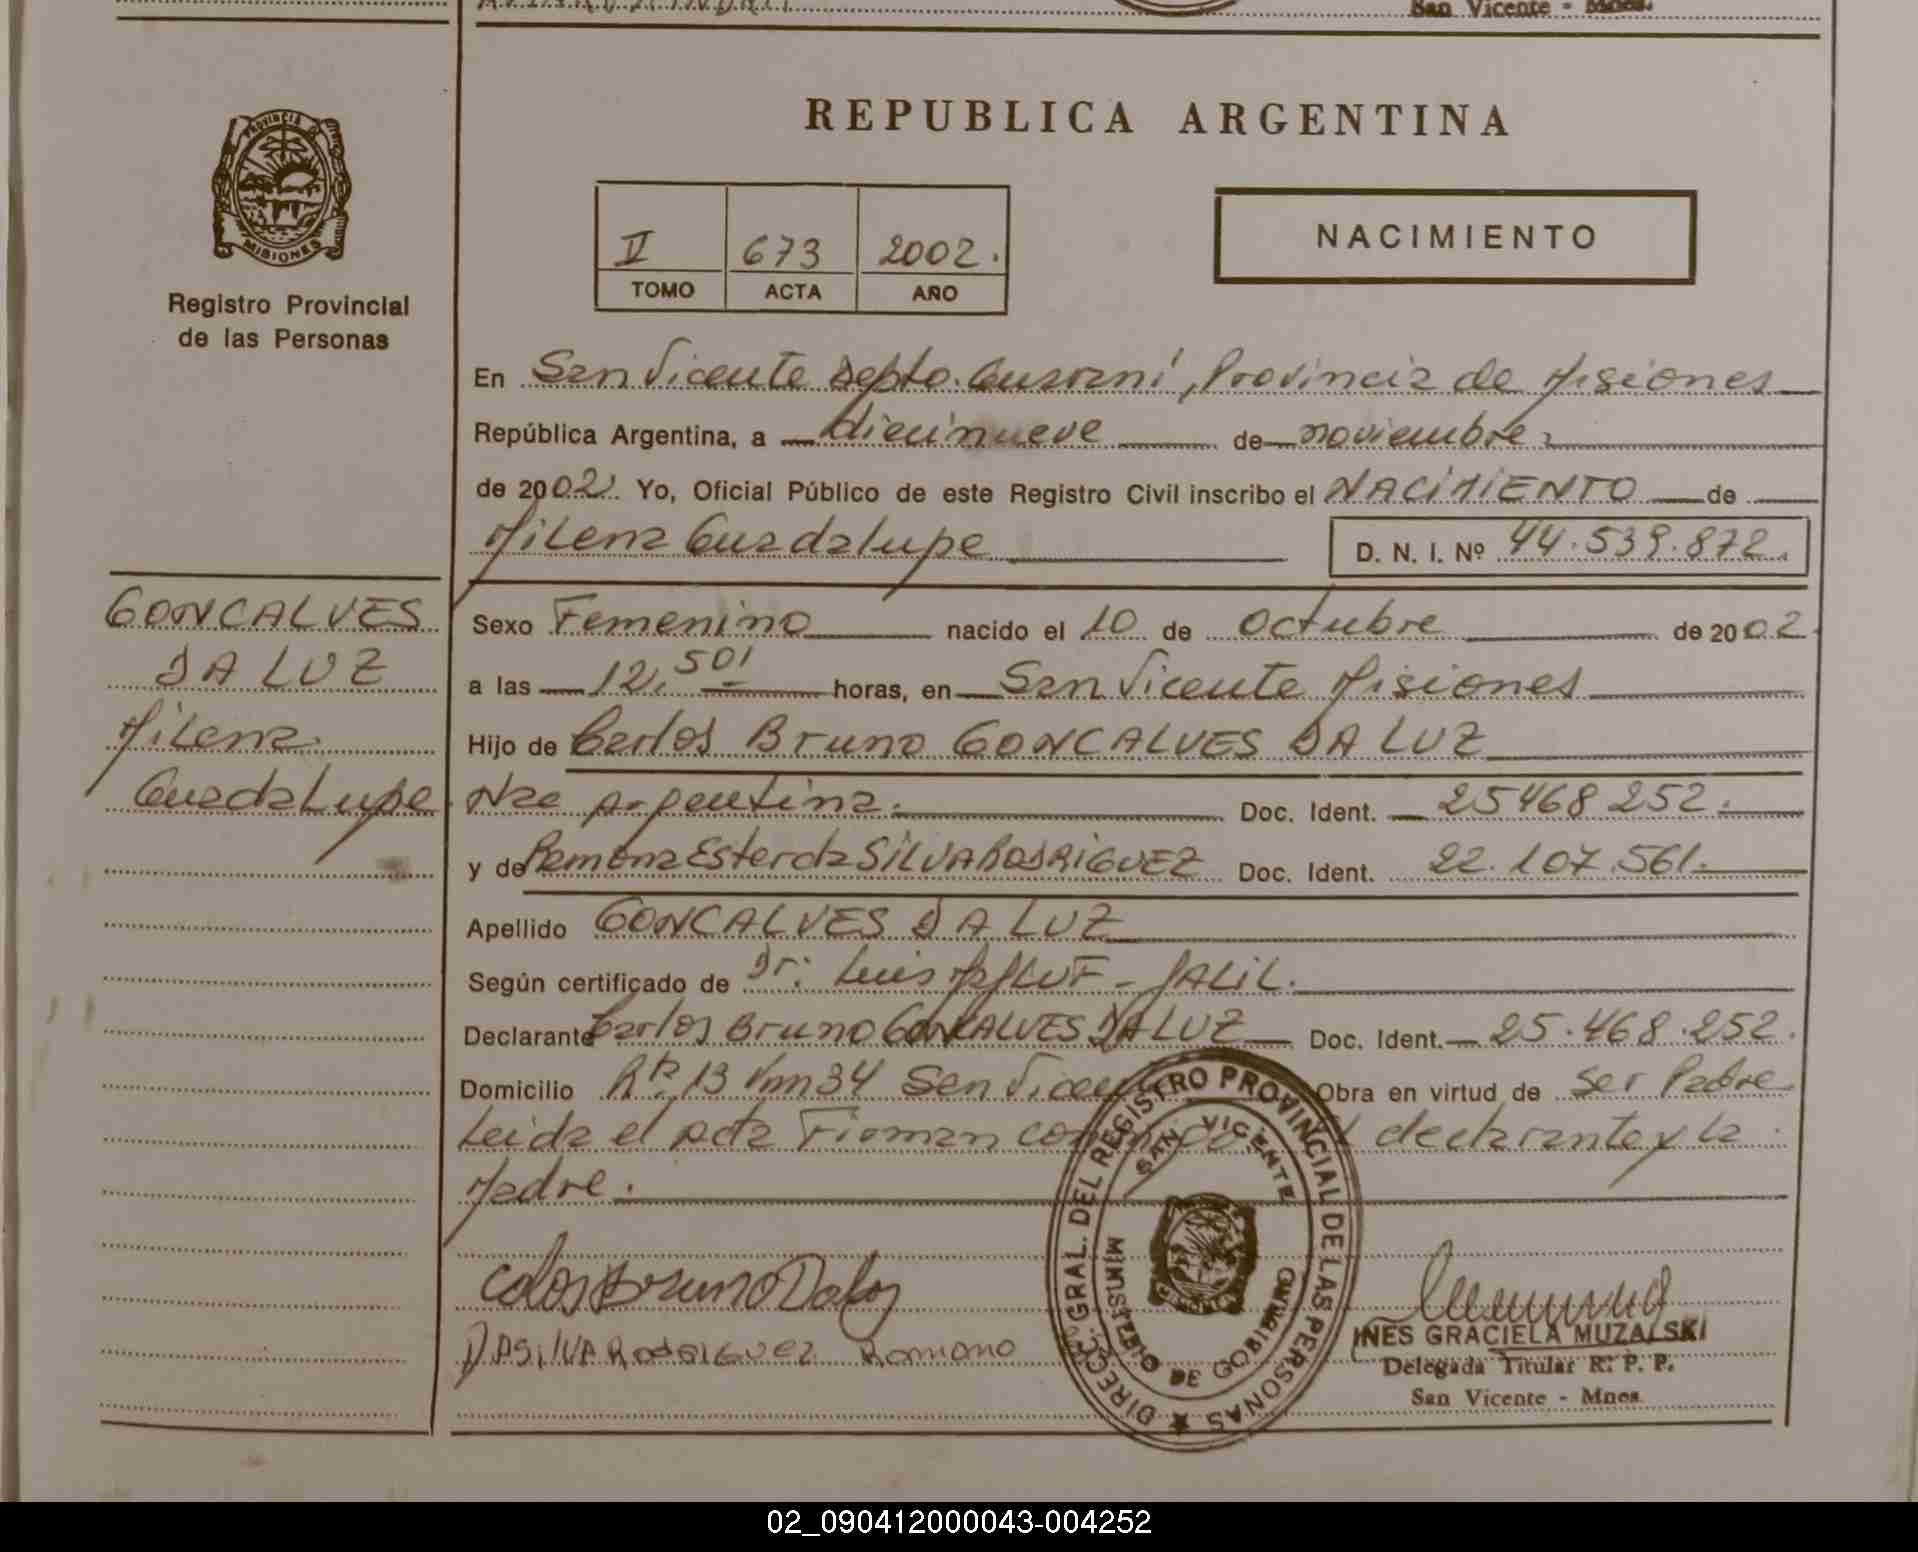 San Vicente - Mnes.
PROVINCIA DE
MISIONES
Registro Provincial
de las Personas
REPUBLICA ARGENTINA
II 673 2002.
TOMO ACTA AÑO
NACIMIENTO
En San Vicente Depto. Guaraní, Provincia de Misiones
República Argentina, a diecinueve de noviembre
de 2002. Yo, Oficial Público de este Registro Civil inscribo el NACIMIENTO de
Milena Guadalupe D. N. I. Nº 44.539.872.
GONCALVES
DA LUZ
Milena
Guadalupe
Sexo Femenino nacido el 10 de Octubre de 2002
a las 12,50' horas, en San Vicente Misiones
Hijo de Carlos Bruno GONCALVES DA LUZ
Nac Argentina. Doc. Ident. 25468 252.
y de Ramona Ester da SILVA RODRIGUEZ Doc. Ident. 22.107.561.
Apellido GONCALVES DA LUZ
Según certificado de Dr: Luis - JALIL.
Declarante Carlos Bruno GONCALVES DA LUZ Doc. Ident. 25.468.252.
Domicilio Rta 13 Km 34 San Vicente Obra en virtud de ser Padre
Leida el acta Firman conmigo el declarante y la
Madre.
DASILVA RODRIGUEZ Romona
DIRECC. GRAL. DEL REGISTRO PROVINCIAL DE LAS PERSONAS
SAN VICENTE
MINISTERIO DE GOBIERNO
INES GRACIELA MUZALSKI
Delegada Titular R. P. P.
San Vicente - Mnes.
02_090412000043-004252